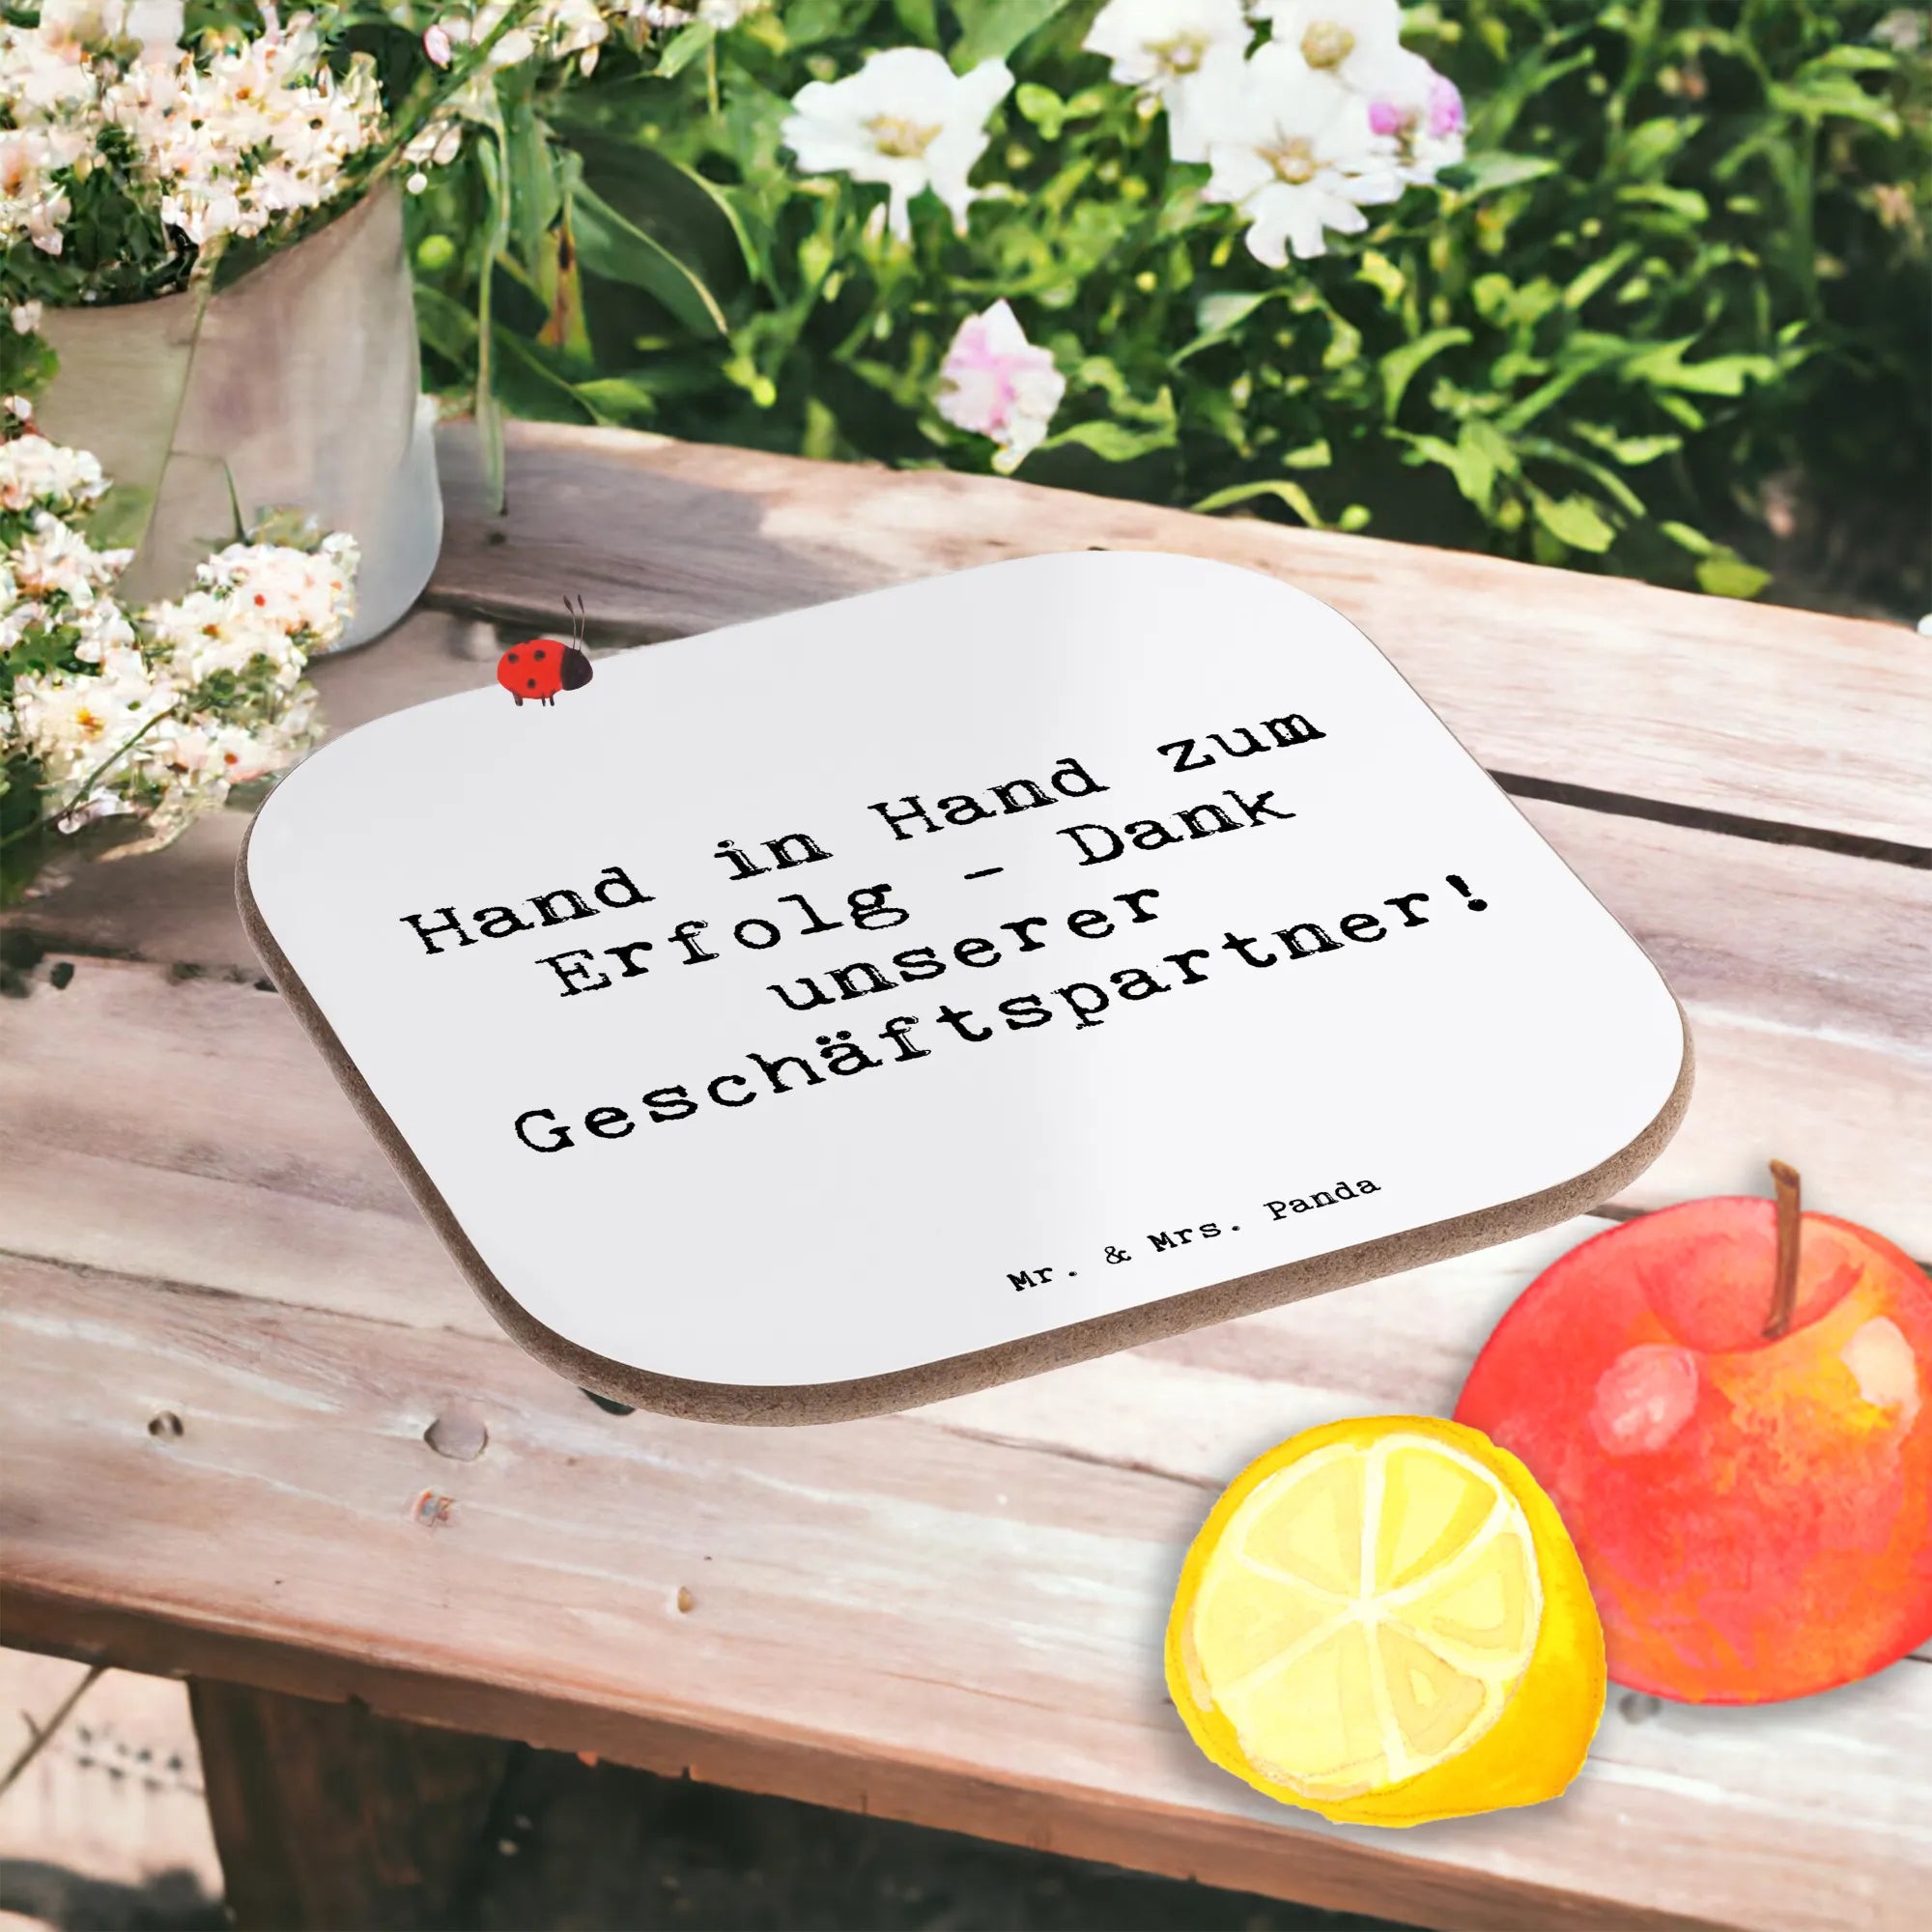 Hand in Hand zum
Erfolg - Dank
unserer
Geschäftspartner!
Mr. & Mrs. Panda